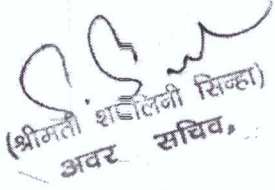 (श्रीमती शालिनी सिन्हा)
अवर सचिव,